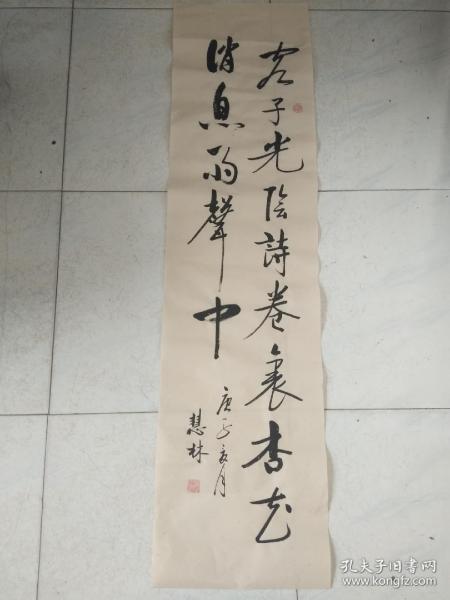 客子光陰詩卷裏杏花
消息雨聲中
庚子夏月
慧林
孔夫子旧书网
www.kongfz.com